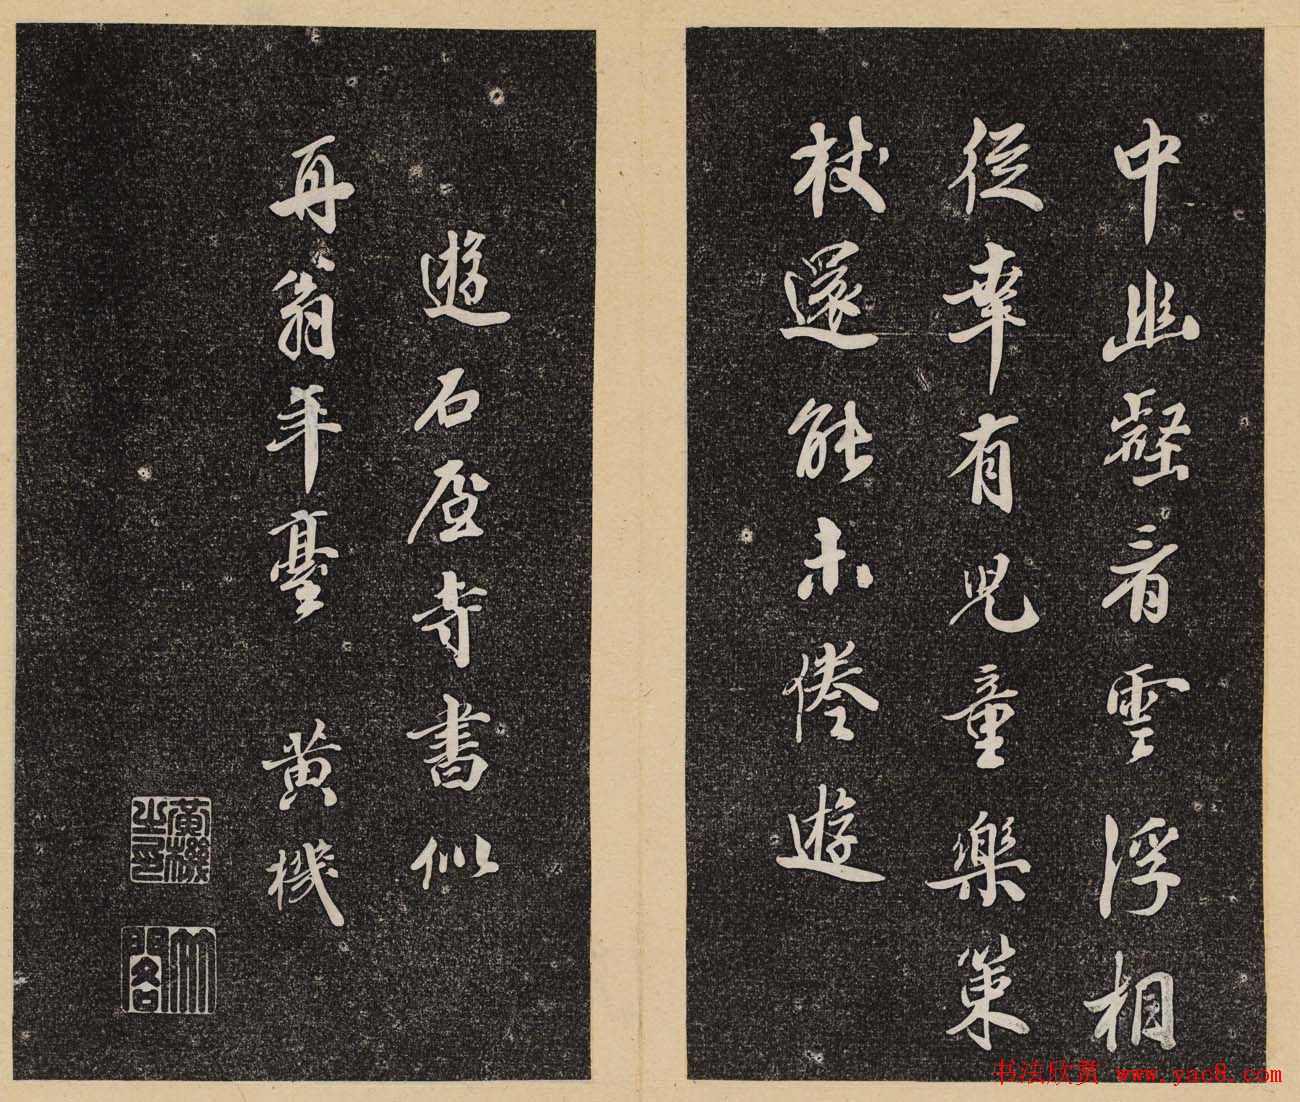 中幽壑音雲浮相
從幸有兒童樂策
杖還能未倦遊
遊石屋寺書似
再翁年臺 黄機
黄機之印
閣
书法欣赏 www.yac8.com